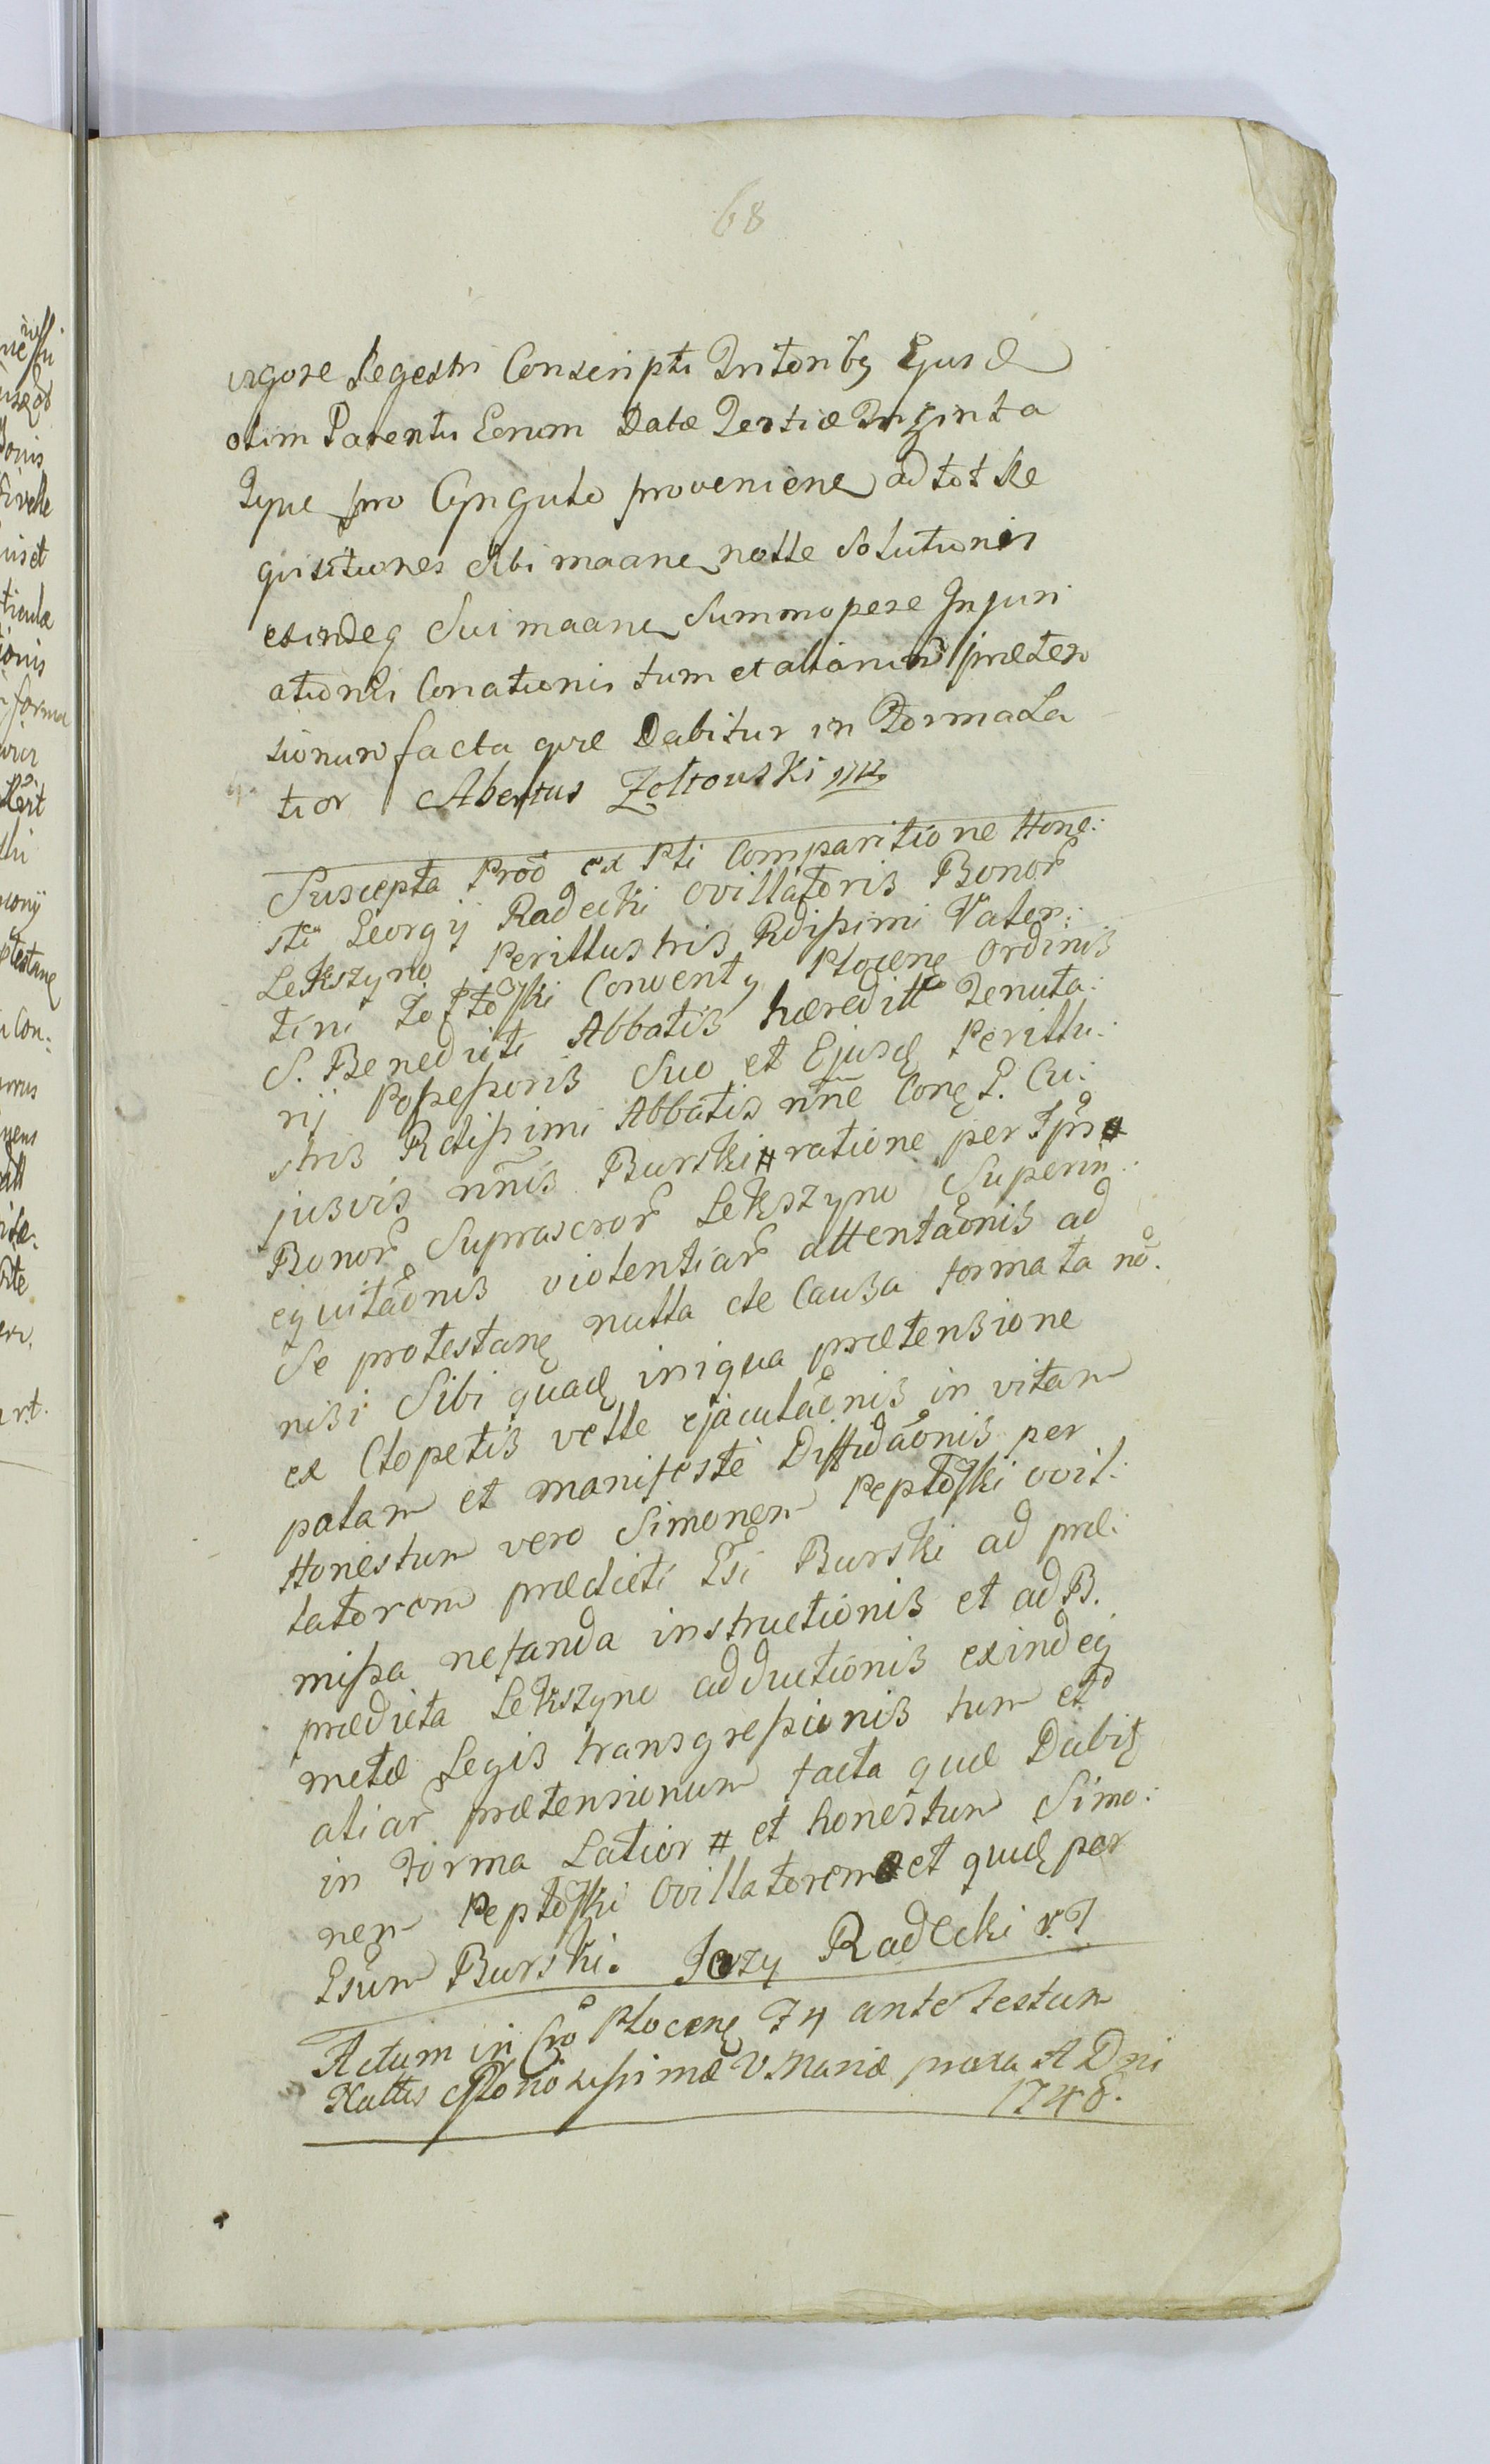 68
vigore Regestri Conscripti Tritoribg Ejusd
olim Parentu Eorum Datæ Tertiæ Triginta
Type pro Cyngulo proveniene ad tot Re
quisitiones Sibi maane nolle Solutionis
exindeq Sui maane Summopere Injuri
ationis Conationis tum et aliarum præten
sionum facta quæ Dabitur in Forma La
tior Albertus Zoltowski mp
Suscepta Prod ex Pti Comparitione Hone:
sti Georgij Radecki Ovillatoris Bonor
Lekszyno Perillustris Rdissimi Valen:
tini Zołtoski Conventg Plocenę Ordinis
S. Benedicti Abbatis hæreditt Tenuta:
rij Possessoris Suo et Ejusdę Perillu:
stris Rdissimi Abbatis nne Conę P. Cu:
jusvis nnis Burski # ratione per Ipsū
Bonor Suprascror Lekszyno Superin:
equitaōnis violentiar attentaōnis ad
Se protestanę nulla de Causa formata nō:
nisi Sibi quadę iniqua prætensione
ex Clopetis velle ejaculaōnis in vitam
palam et manifeste Diffidaōnis per
Honestum vero Simonem Peptoski Ovil:
latorem prædicti Gsi Burski ad præ:
missa nefanda instructionis et ad B.
prædicta Lekszyno adductionis exindeq
metæ Legis transgressionis tum et
aliar prætensionum facta quæ Dabit
in Forma Latior # et honestum Simo:
nem Peptoski Ovillatorem et quidę per
Gsum Burski. Jerzy Radecki
Actum in Cro Plocenę F 4 ante Festum
Nattis Gloriosissimæ V. Mariæ proxa A Dni
1748.